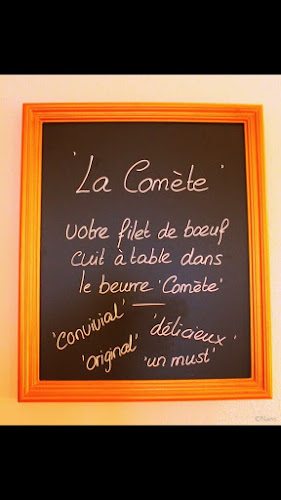 'La Comète'
Votre filet de bœuf
Cuit à table dans
le beurre 'Comète'
'convivial' 'délicieux'
'original' 'un must'